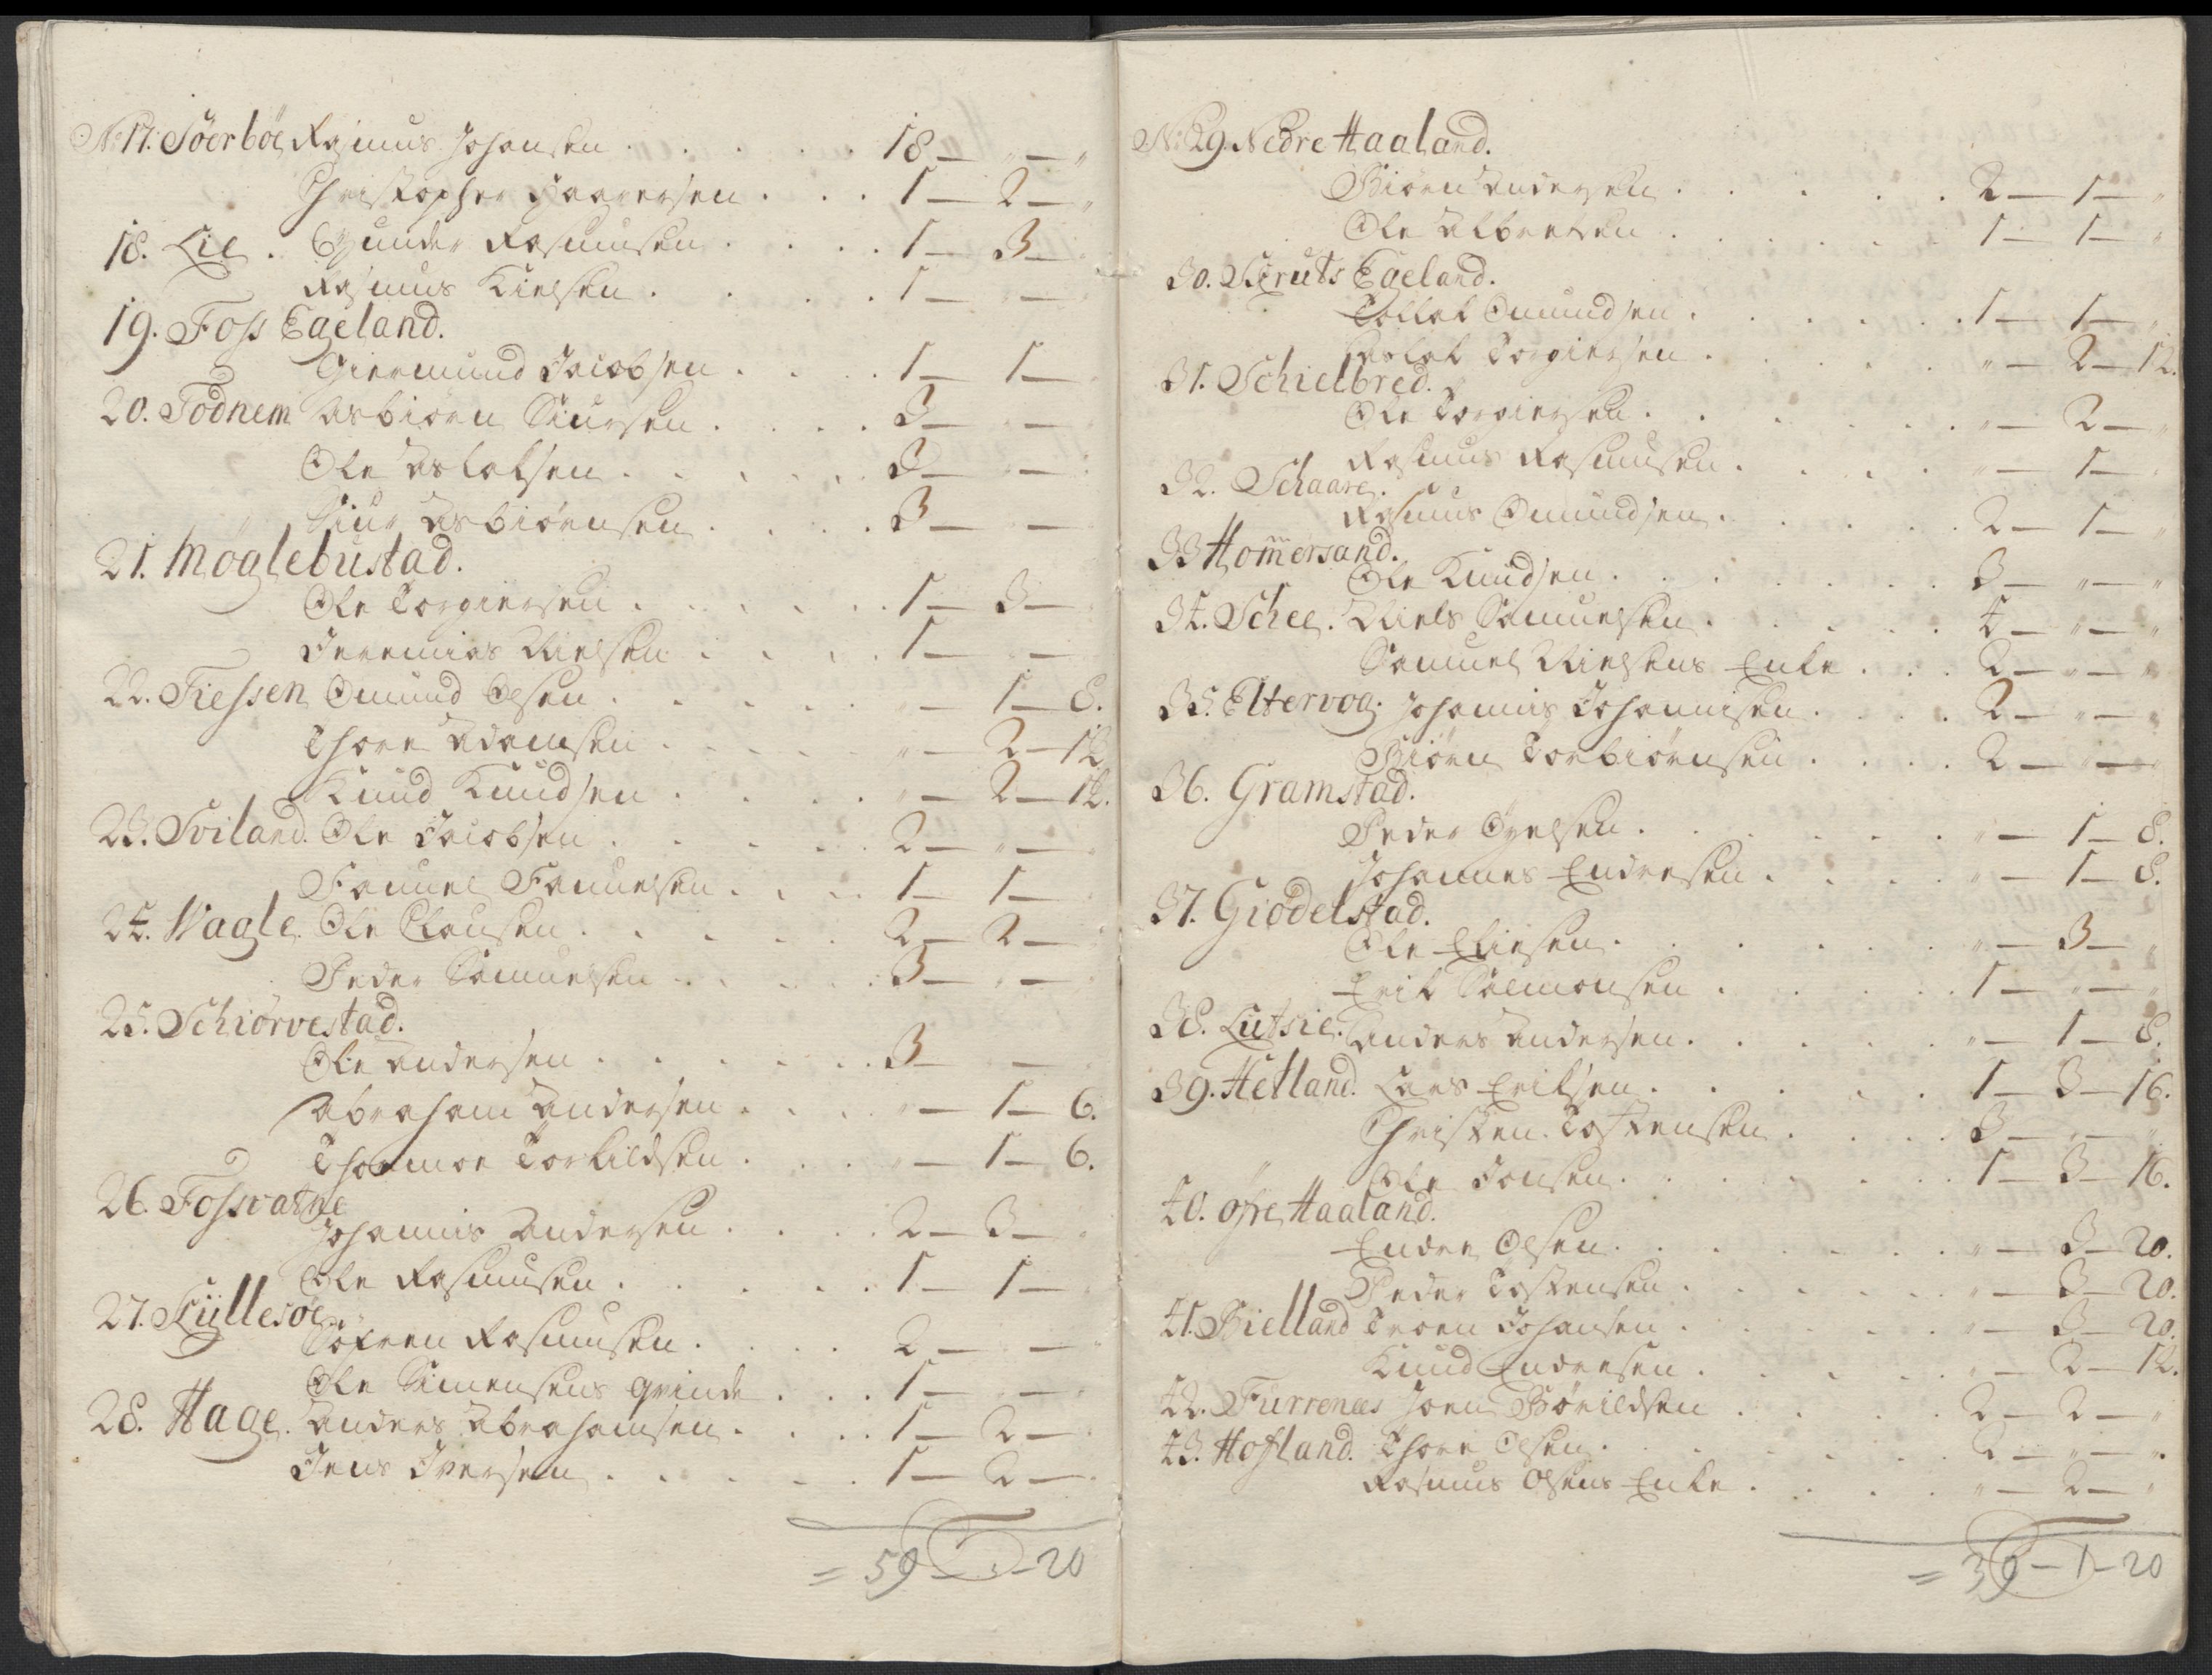 No 17. Söerböe Rasmus Johansen . . . . . 18 — „ — „
Christopher Haagensen . . . 1 — 2 — „
18. Lie. Gunder Rasmusen . . . . 1 — 3 —
Rasmus Kielsen . . . . 1 — „ —
19. Foss Egeland.
Giermund Jacobsen . . . . 1 — 1 —
20. Födnem Asbiörn Siursen . . . . 3 — „ —
Ole Aslaksen . . . . . 3 — „ —
Siur Asbiörnsen . . . . 3 — „ —
21. Möglebustad.
Ole Torgiersen . . . . . 1 — 3 —
Jeremias Nielsen . . . . 1 — „ —
22. Fiessen Omund Olsen . . . . . „ — 1 — 8.
Thore Adamsen . . . . . „ — 2 — 12.
Knud Knudsen . . . . . „ — 2 — 12.
23. Sviland. Ole Jacobsen . . . . . 2 — „ —
Samuel Samuelsen . . . . 1 — 1 —
24. Vagle. Ole Clausen . . . . . 2 — 2 —
Peder Samuelsen . . . . . 3 — „ —
25. Schiörvestad.
Ole Andersen . . . . . 3 — „ —
Abraham Andersen . . . . „ — 1 — 6.
Thormoe Torkildsen . . . . „ — 1 — 6.
26. Fossvatne
Johannis Andersen . . . . 2 — 3 —
Ole Rasmusen . . . . . 1 — 1 —
27. Kyllesöe
Söfren Rasmusen . . . . 2 — „ —
Ole Simensens qvinde . . . 1 — „ —
28. Hage. Anders Abrahamsen . . . . 1 — 2 —
Jens Iversen . . . . . 1 — 2 —
= 59 — — 20
No 29. Nedre Haaland.
Biörn Andersen . . . . . 2 — 1 — „
Ole Albretsen . . . . . 1 — 1 — „
30. Scruts Egeland.
Tollak Omundsen . . . . . 1 — 1 — „
Aslak Torgiersen . . . . . „ — 2 — 12.
31. Schielbred.
Ole Torgiersen . . . . . „ — 2 — „
Rasmus Rasmusen . . . . „ — 1 — „
32. Schaare.
Rasmus Omundsen . . . . . 2 — 1 — „
33 Homersand.
Ole Knudsen . . . . . 3 — „ — „
34. Schee. Niels Samuelsen . . . . . 4 — „ — „
Samuel Nielsens Enke . . . 2 — „ — „
35. Eltervog. Johannis Johannisen . . . . 2 — „ — „
Biörn Torbiörnsen . . . . 2 — „ — „
36. Gramstad.
Peder Giselsen . . . . . „ — 1 — 8.
Johannes Endresen . . . . „ — 1 — 8.
37. Giödelstad.
Ole Eliesen . . . . . „ — 3 — „
Erik Salmonsen . . . . . 1 — „ — „
38. Lutsie. Anders Andersen . . . . . „ — 1 — 8.
39. Hetland. Lars Eriksen . . . . . 1 — 3 — 16.
Christen Tostensen . . . . 3 — „ — „
Ole Jonsen . . . . . 1 — 3 — 16.
40. Øfre Haaland.
Endre Olsen . . . . . „ — 3 — 20.
Peder Tostensen . . . . . „ — 3 — 20.
41. Bielland Troen Johansen . . . . . „ — 3 — 20.
Knud Endresen . . . . . „ — 2 — 12.
42. Furrenæs Joen Börildsen . . . . 2 — 2 — „
43. Hofland. Thore Olsen . . . . . 2 — „ — „
Rasmus Olsens Enke . . . . „ — 2 — „
= 39 — 1 — 20